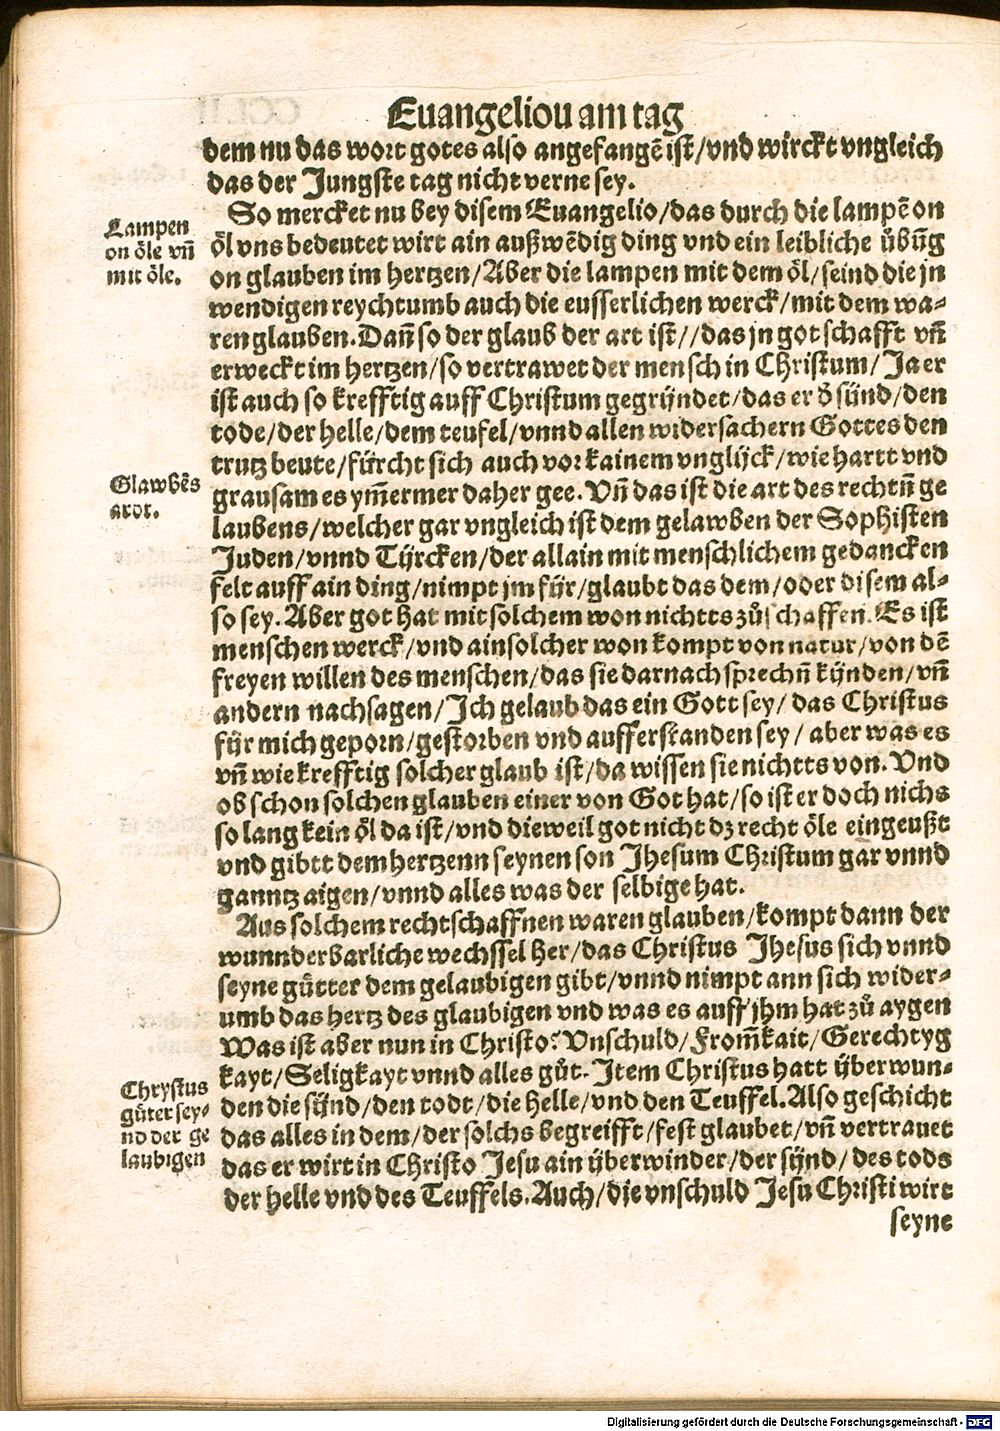 Euangeliou am tag
dem nu das wort gotes also angefangē ist/vnd wirckt vngleich
das der Jungste tag nicht verne sey.
So mercket nu bey disem Euangelio/das durch die lampē on
öl vns bedeutet wirt ain außwēdig ding vnd ein leibliche übūg
on glauben im hertzen/Aber die lampen mit dem öl/seind die jn
wendigen reychtumb auch die eusserlichen werck/mit dem wa-
ren glauben.Dañ so der glaub der art ist//das jn got schafft vñ
erweckt im hertzen/so vertrawet der mensch in Christum/Ja er
ist auch so krefftig auff Christum gegrijndet/das er d̄ sijnd/den
tode/der helle/dem teufel/vnnd allen widersachern Gottes den
trutz beute/fürcht sich auch vor kainem vnglijck/wie hartt vnd
grausam es ym̄ermer daher gee.Vñ das ist die art des rechtñ ge
laubens/welcher gar vngleich ist dem gelawben der Sophisten
Juden/vnnd Tijrcken/der allain mit menschlichem gedancken
felt auff ain ding/nimpt jm fijr/glaubt das dem/oder disem al-
so sey.Aber got hat mit solchem won nichtts zů schaffen.Es ist
menschen werck/vnd ain solcher won kompt von natur/von dē
freyen willen des menschen/das sie darnach sprechñ kijnden/vñ
andern nachsagen/Ich gelaub das ein Gott sey/das Christus
fijr mich geporn/gestorben vnd aufferstanden sey/aber was es
vñ wie krefftig solcher glaub ist/da wissen sie nichtts von.Vnd
ob schon solchen glauben einer von Got hat/so ist er doch nichs
so lang kein öl da ist/vnd dieweil got nicht dz recht öle eingeußt
vnd gibtt dem hertzenn seynen son Jhesum Christum gar vnnd
ganntz aigen/vnnd alles was der selbige hat.
Aus solchem rechtschaffnen waren glauben/kompt dann der
wunnderbarliche wechssel her/das Christus Jhesus sich vnnd
seyne gütter dem gelaubigen gibt/vnnd nimpt ann sich wider-
umb das hertz des glaubigen vnd was es auff jhm hat zů aygen
Was ist aber nun in Christo?Vnschuld/From̄kait/Gerechtyg
kayt/Seligkayt vnnd alles gůt.Item Christus hatt ijberwun-
den die sijnd/den todt/die helle/vnd den Teuffel.Also geschicht
das alles in dem/der solchs begreifft/fest glaubet/vñ vertrauet
das er wirt in Christo Jesu ain ijberwinder/der sijnd/des tods
der helle vnd des Teuffels.Auch/die vnschuld Jesu Christi wirt
seyne
Lampen
on öle vñ
mit öle.
Glawbēs
ardt.
Chrystus
güter sey-
nd der ge
laubigen
Digitalisierung gefördert durch die Deutsche Forschungsgemeinschaft - DFG